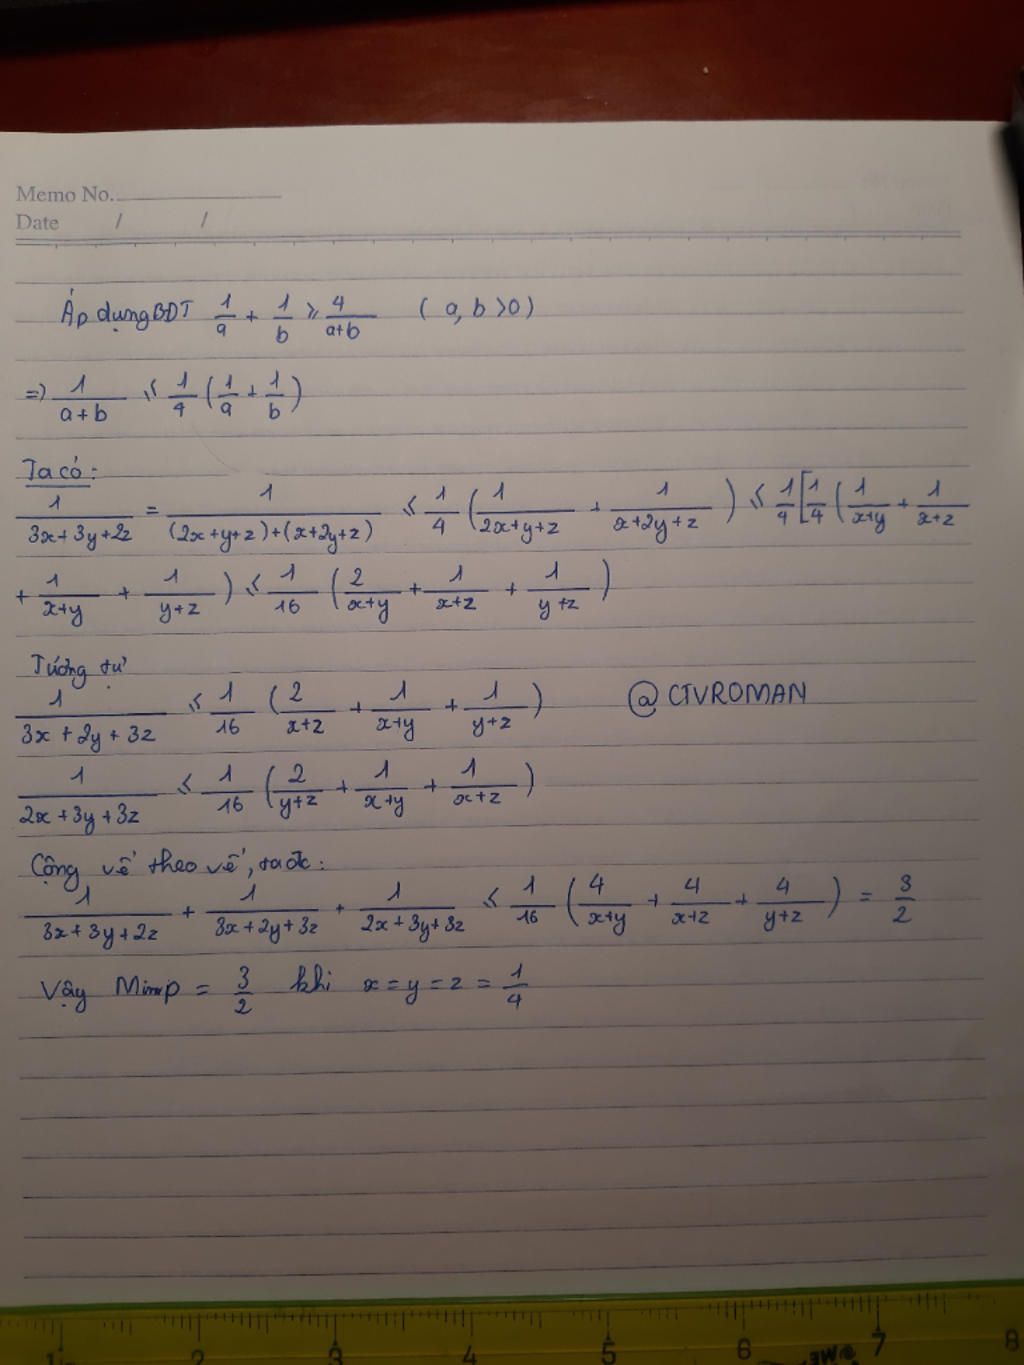 Memo No.
Date / /
Áp dụng BĐT 1/a + 1/b ≥ 4/(a+b) ( a, b >0 )
=> 1/(a+b) ≤ 1/4 (1/a + 1/b)
Ta có:
1/(3x+3y+2z) = 1/((2x+y+z)+(x+2y+z)) ≤ 1/4 (1/(2x+y+z) + 1/(x+2y+z)) ≤ 1/4 [1/4 (1/(x+y) + 1/(x+z)
+ 1/(x+y) + 1/(y+z) ) ≤ 1/16 (2/(x+y) + 1/(x+z) + 1/(y+z))
Tương tự
1/(3x+2y+3z) ≤ 1/16 (2/(x+z) + 1/(x+y) + 1/(y+z)) @CTVROMAN
1/(2x+3y+3z) ≤ 1/16 (2/(y+z) + 1/(x+y) + 1/(x+z))
Cộng vế theo vế, ta đc:
1/(3x+3y+2z) + 1/(3x+2y+3z) + 1/(2x+3y+3z) ≤ 1/16 (4/(x+y) + 4/(x+z) + 4/(y+z)) = 3/2
Vậy Minp = 3/2 khi x = y = z = 1/4
1 2 3 4 5 6 7 8